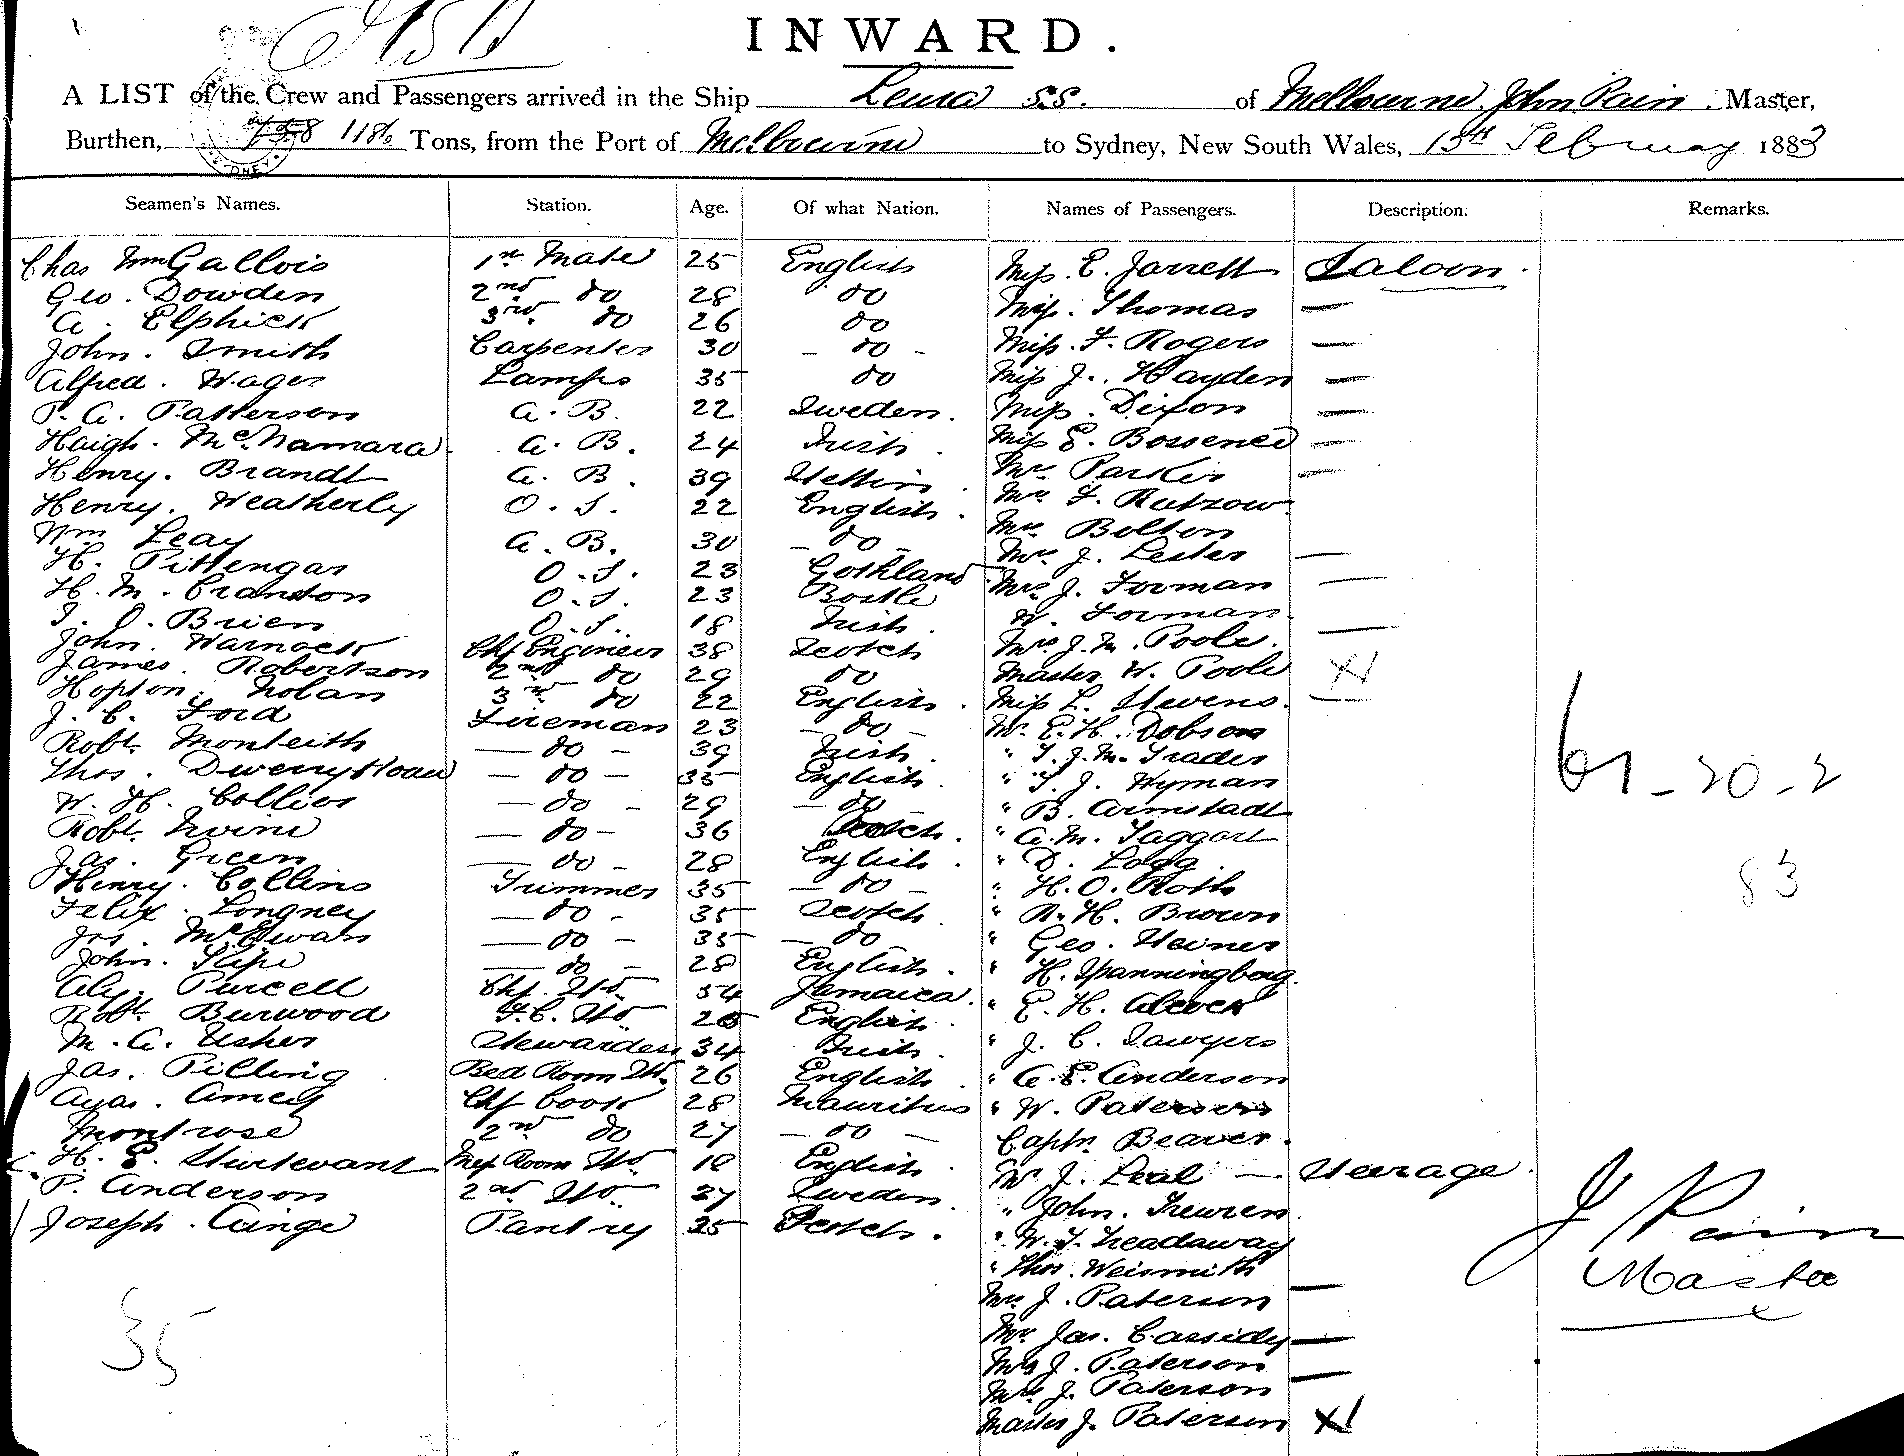 INWARD.
A LIST of the Crew and Passengers arrived in the Ship Leura S.S. of Melbourne, John Pain Master,
Burthen, 1186 Tons, from the Port of Melbourne to Sydney, New South Wales, 13th February 1883
Seamen's Names. Station. Age. Of what Nation. Names of Passengers. Description. Remarks.
Chas Wm Gallois 1st Mate 25 English Miss E. Jarrett Saloon.
Geo. Dowden 2nd do 28 do Miss. Thomas —
A. Elphick 3rd do 26 do Miss. F. Rogers —
John. Smith Carpenter 30 - do - Miss J. Hayden —
Alfred. Wager Lamps 35 do Miss. Dixon —
P. A. Patterson A. B. 22 Sweden. Miss E. Bossence —
Haigh. McNamara A. B. 24 Irish. Mr Parker —
Henry. Brandt A. B. 39 Stettin. Mr F. Rutzow
Henry. Weatherly O. S. 22 English. Mr Bolton
Wm Leay A. B. 30 - do - Mrs J. Lester —
H. Pittengar O. S. 23 Gothland Mrs J. Forman —
H. M. Cranston O. S. 23 Bootle W. Forman
J. O. Brien O. S. 18 Irish. Mrs J. M. Poole. —
John. Warnock Chf Engineer 38 Scotch Master W. Poole
James. Robertson 2nd do 29 do Miss L. Stevens. —
Hopton. Nolan 3rd do 22 English. Mr. E. H. Dobson
J. C. Ford Fireman 23 - do - " T. J. M. Trader
Robt. Monteith — do - 39 Irish. " T. J. Wyman
Thos. — do — 35 English. " B. Armstadt
W. H. Collier — do - 29 - do " A. M. Taggart
Robt. Irvine — do - 36 Scotch. " D. Logg
Jas. Green — do - 28 English. " H. O. Roth
Henry. Collins Trimmer 35 - do - " R. H. Brown
Felix. Longney — do - 35 Scotch. " Geo. Steiner
Jas. McEwan — do - 35 - do " H. Spanningberg.
John. Slipe — do - 28 English. " E. H. Alcock
Aly. Purcell Chf. Std. 54 Jamaica. " J. C. Sawyers
Robt. Burwood F.C. Std. English. " A. E. Anderson
M. A. Usher Stewardess 34 Irish. " W. Paterson
Jas. Pilling Bed Room Std. 26 English. Captn. Beaver.
Ayas. Amey Chf Cook 28 Mauritus Mr J. Leal — Steerage.
Montrose 2nd do 27 - do - " John. Trewren
H. E. Sturtevant Mess Room Std. English. " W. T. Treadaway
P. Anderson 2nd Std. 27 Sweden. " Thos. Weismith
Joseph. Cainge Pantry 25 Scotch. Mr J. Paterson —
Mr Jas. Cassidy —
Mrs J. Paterson
Mrs J. Paterson —
Master J. Paterson
61 - 20 - 2
83
35
J Pain
Master